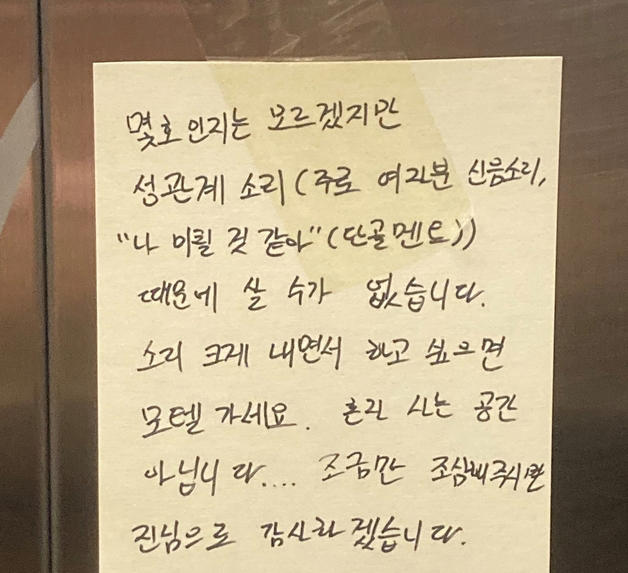 몇호인지는 모르겠지만
성관계 소리 (주로 여자분 신음소리,
"나 미칠 것 같아" (단골멘트))
때문에 살 수가 없습니다.
소리 크게 내면서 하고 싶으면
모텔 가세요. 혼자 사는 공간
아닙니다.... 조금만 조심해주시면
진심으로 감사하겠습니다.